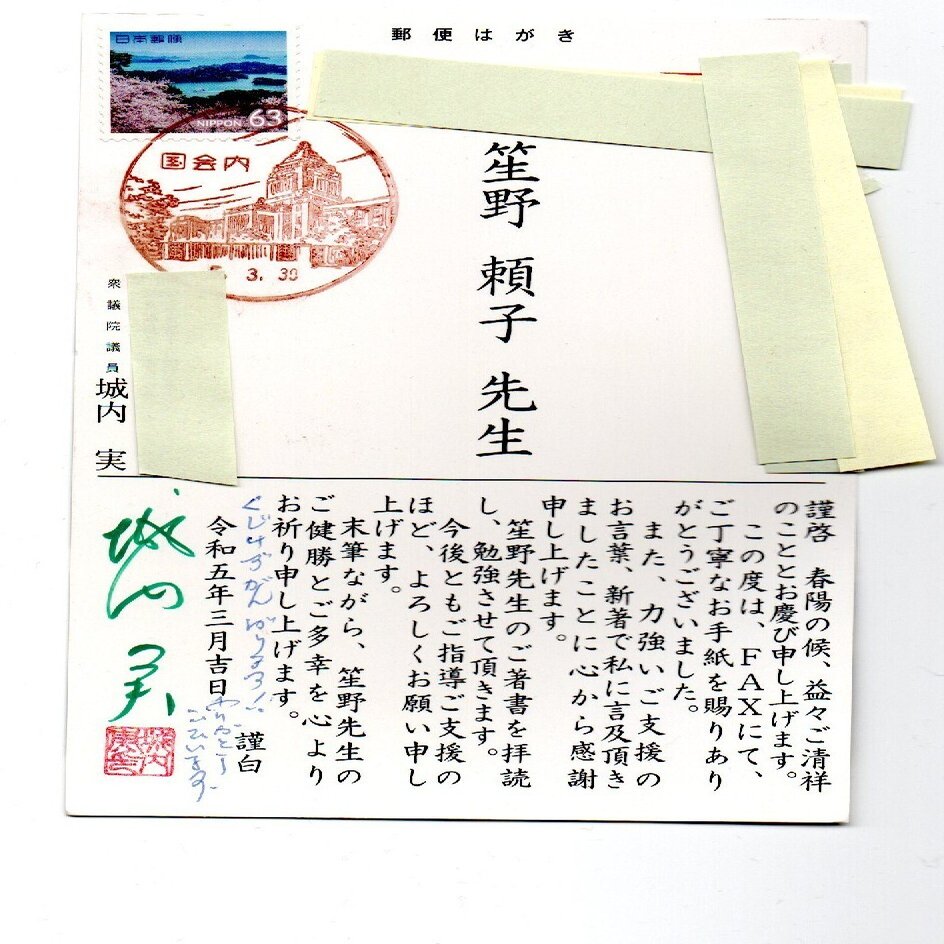 郵便はがき
日本郵便
NIPPON 63
国会内
3. 30
笙野 頼子 先生
衆議院議員
城内 実
謹啓 春陽の候、益々ご清祥
のこととお慶び申し上げます。
この度は、FAXにて、
ご丁寧なお手紙を賜りあり
がとうございました。
また、力強いご支援の
お言葉、新著で私に言及頂き
ましたことに心から感謝
申し上げます。
笙野先生のご著書を拝読
し、勉強させて頂きます。
今後ともご指導ご支援の
ほど、よろしくお願い申し
上げます。
末筆ながら、笙野先生の
ご健勝とご多幸を心より
お祈り申し上げます。
謹白
くじけずがんばります!!
令和五年三月吉日
ありがとう
ございます。
城内 実